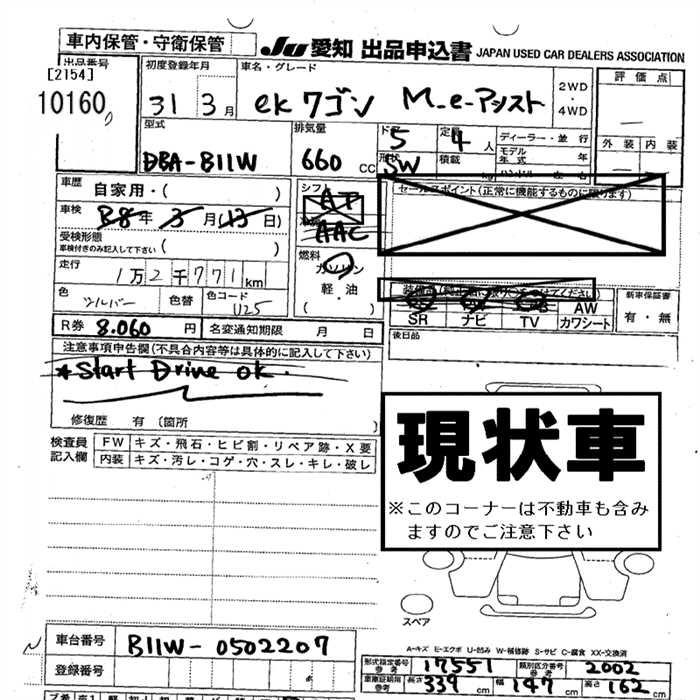 車内保管・守衛保管
JU 愛知 出品申込書 JAPAN USED CAR DEALERS ASSOCIATION
出品番号
[2154]
10160
初度登録年月
31 3月
車名・グレード
ekワゴン M-e-アシスト
2WD・4WD
評価点
外装 内装
型式
DBA-B11W
排気量
660 CC
ドア
5
定員
4人
形状
SW
積載 kg
ディーラー・並行
モデル年式 年
ハンドル 左 右
車歴 自家用・( )
車検 R8年3月(13日)
受検形態
車検付きのみ記入して下さい ( )
走行
1万2千771km
色 シルバー
色替
色コード U25
シフト
AT
AAC
燃料
ガソリン
軽・油
( )
セールスポイント(正常に機能するものに限ります)
SR ナビ TV AW カワシート
新車保証書
有・無
R券 8.060円
名変通知期限 月 日
後日品
注意事項申告欄(不具合内容等は具体的に記入して下さい)
*Start Drive ok.
修復歴 有 (箇所 )
検査員記入欄
FW キズ・飛石・ヒビ割・リペア跡・X要
内装 キズ・汚レ・コゲ・穴・スレ・キレ・破レ
現状車
※このコーナーは不動車も含み
ますのでご注意下さい
スペア
A-キズ E-エクボ U-凹み W-補修跡 S-サビ C-腐食 XX-交換済
車台番号 B11W-0502207
登録番号
形式指定番号 参考 17551
類別区分番号 参考 2002
車庫証明用 参考 長さ 339cm 幅 147cm 高さ 162cm